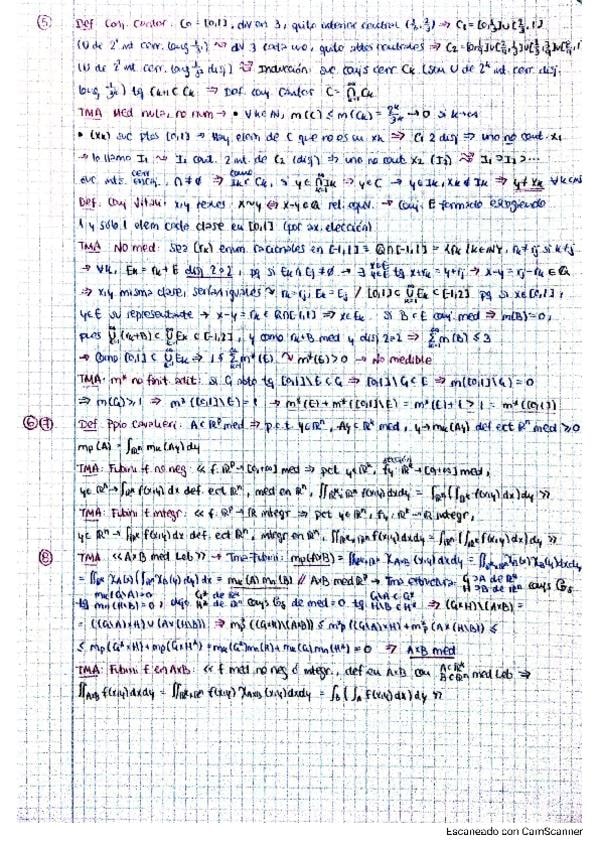 ⑤ Def Conj. Cantor: C₀ = [0,1], div en 3, quito interior central (1/3, 2/3) ⇒ C₁ = [0,1/3]∪[2/3,1]
(∪ de 2¹ int. cerr. long 1/3) ⇝ div 3 cada uno, quito centrales ⇒ C₂ =
(∪ de 2² int. cerr. long 1/3² disj) ⇝ Inducción suc conjs cerr Cₖ (seu ∪ de 2ᵏ int. cerr. disj.
long 1/3ᵏ) tq Cₖ₊₁ ⊂ Cₖ ⇒ Def. conj Cantor C = ∩ Cₖ
TMA Med nula, no num → • ∀k∈ℕ, m(C) ≤ m(Cₖ) = 2ᵏ/3ᵏ → 0 si k→∞
• (xₖ) suc ptos [0,1] → Hay elem de C que no es un xₖ ⇒ C₁ 2 disj ⇒ uno no cont. x₁
→ lo llamo I₁ ⇝ I₁ cont. 2 int. de C₂ (disj) ⇒ uno no cout x₂ (I₂) ⇝ I₁ ⊃ I₂ ⊃ ...
suc ints. cerr encaj. ∩ ≠ ∅ ⇒ Iₖ ⊂ Cₖ, si y ∈ ∩Iₖ ⇒ y∈C → y∈Iₖ, xₖ∉Iₖ ⇒ y≠xₖ ∀k∈ℕ
Def. Conj Vitali: x,y reales: x~y ⇔ x-y∈ℚ rel. equiv. → Conj. E formado escogiendo
1 y sólo 1 elem cada clase eu [0,1] (por ax. elección)
TMA No med: sea (rₖ) enum. racionales en [-1,1] = ℚ∩[-1,1] = {rₖ/k∈ℕ}, rₖ≠rⱼ si k≠j
→ ∀k, Eₖ = rₖ+E disj 2a2, pq si Eₖ∩Eⱼ≠∅ → ∃ x∈E y∈E tq x+rₖ = y+rⱼ → x-y = rⱼ-rₖ ∈ ℚ
⇒ x,y misma clase, serían iguales ⇝ rₖ=rⱼ, Eₖ=Eⱼ / [0,1] ⊂ ∪Eₖ ⊂ [-1,2] pq si x∈[0,1],
y∈E su representante → x-y = rₖ ∈ ℚ∩[-1,1] ⇒ x∈Eₖ. Si B⊂E conj. med ⇒ m(B)=0,
pues ∪(rₖ+B) ⊂ ∪Eₖ ⊂ [-1,2], y como rₖ+B med y disj 2a2 ⇒ Σ m(B) ≤ 3
→ Como [0,1] ⊂ ∪Eₖ ⇒ 1 ≤ Σm*(E) ⇝ m*(E)>0 → No medible
TMA: m* no finit. adit: si G abto tq [0,1]\E ⊂ G ⇒ [0,1]\G ⊂ E ⇒ m([0,1]\G) = 0
⇒ m(G) ≥ 1 ⇒ m*([0,1]\E) = 1 → m*(E) + m*([0,1]\E) = m*(E)+1 > 1 = m*([0,1])
⑥⑦ Def. Ppio Cavalieri: A⊂ℝᵖ med ⇒ p.c.t. y∈ℝⁿ, Aᵧ⊂ℝᵏ med, y→mₖ(Aᵧ) def ect ℝⁿ med ≥0
mₚ(A) = ∫ℝⁿ mₖ(Aᵧ)dy
TMA: Fubini f. no neg. « f: ℝᵖ→[0,+∞] med ⇒ pct y∈ℝⁿ, sección fᵧ: ℝᵏ→[0,+∞] med,
y∈ℝⁿ→∫ℝᵏ f(x,y) dx def. ect ℝⁿ, med en ℝⁿ, ∬ℝᵏxℝⁿ f(x,y)dxdy = ∫ℝⁿ(∫ℝᵏ f(x,y)dx)dy »
TMA: Fubini f integr: « f: ℝᵖ→ℝ integr ⇒ pct y∈ℝⁿ, fᵧ: ℝᵏ→ℝ integr,
y∈ℝⁿ→∫ℝᵏ f(x,y)dx def. ect ℝⁿ, integr en ℝⁿ, ∬ℝᵏxℝⁿ f(x,y)dxdy = ∫ℝⁿ(∫ℝᵏ f(x,y)dx)dy »
⑧ TMA «AxB med Leb» → Tma Fubini: mₚ(AxB) = ∬ℝᵏxℝⁿ χAxB (x,y)dxdy = ∬ℝᵏxℝⁿ χA(x)χB(y)dxdy
= ∫ℝᵏ χA(x)(∫ℝⁿ χB(y) dy)dx = mₖ(A)mₙ(B) // AxB med ℝᵖ → Tma estructura: G⊃A de ℝᵏ H⊃B de ℝⁿ conjs Gδ
tq mₖ(G\A)=0 mₙ(H\B)=0, G* de ℝᵏ H* de ℝⁿ conjs Gδ de med=0 tq G\A⊂G* H\B⊂H* ⇒ (GxH)\(AxB) =
= ((G\A)xH) ∪ (Ax(H\B)) ⇒ mₚ*((GxH)\(AxB)) ≤ mₚ*((G\A)xH) + mₚ*(Ax(H\B)) ≤
≤ mₚ(G*xH) + mₚ(GxH*) = mₖ(G*)mₙ(H) + mₖ(G)mₙ(H*) = 0 ⇒ AxB med
TMA: Fubini f en AxB: « f med no neg ó integr, def eu AxB con A⊂ℝᵏ B⊂ℝⁿ med Leb ⇒
∬AxB f(x,y)dxdy = ∬ℝᵏxℝⁿ f(x,y) χAxB (x,y)dxdy = ∫B(∫A f(x,y)dx)dy »
Escaneado con CamScanner